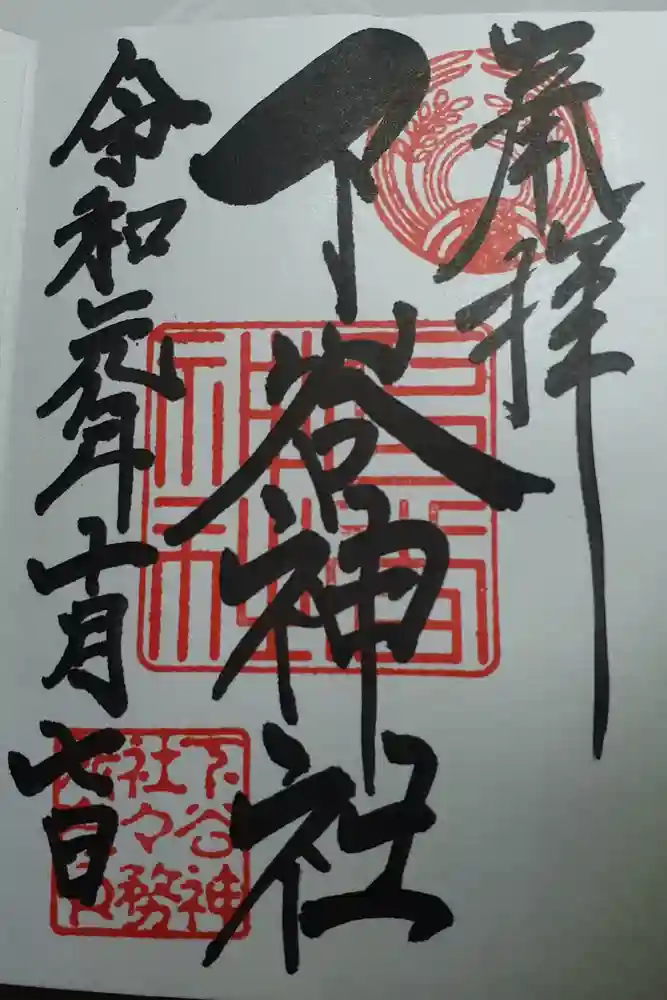 奉拝
下谷神社
令和元年十月七日
下谷神
社々務